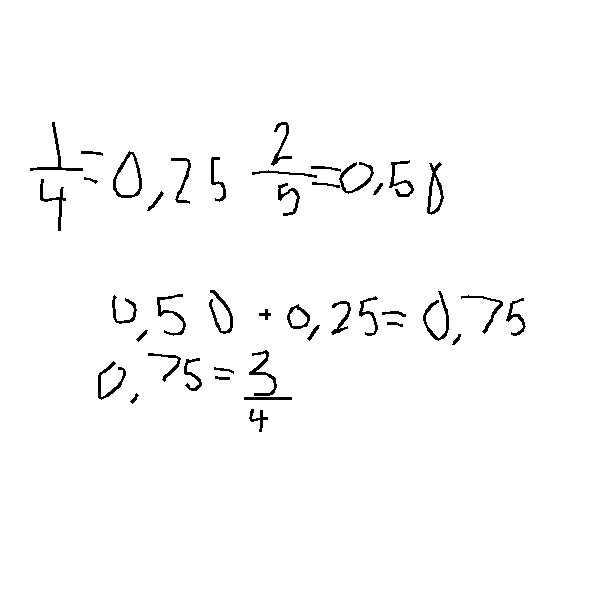 1/4 = 0,25 2/5 = 0,50
0,50 + 0,25 = 0,75
0,75 = 3/4